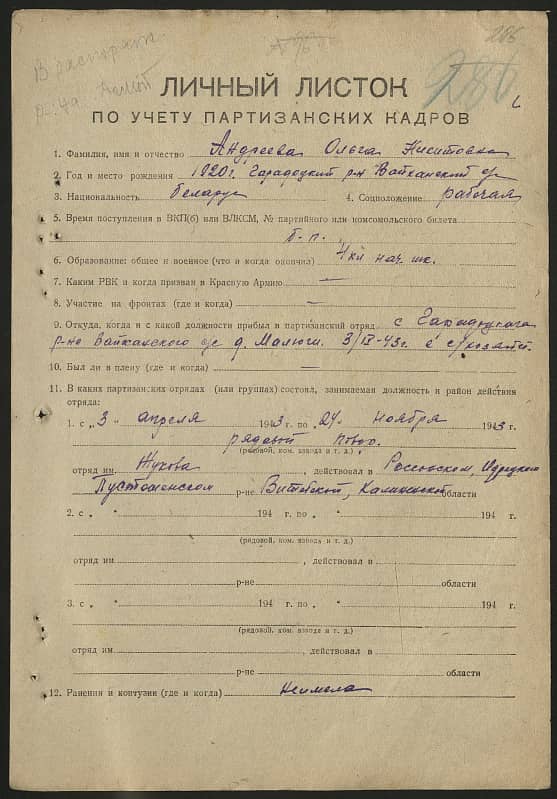 286
286
В распоряж.
ЛИЧНЫЙ ЛИСТОК
ПО УЧЕТУ ПАРТИЗАНСКИХ КАДРОВ
1. Фамилия, имя и отчество Андреева Ольга Никитовна
2. Год и место рождения 1920г. Гарадоцкий р-н Вайханский с/с
3. Национальность беларус 4. Соцположение рабочая
5. Время поступления в ВКП(б) или ВЛКСМ, № партийного или комсомольского билета
б.п.
6. Образование: общее и военное (что и когда окончил) 4кл нач. шк.
7. Каким РВК и когда призван в Красную Армию —
8. Участие на фронтах (где и когда) —
9. Откуда, когда и с какой должности прибыл в партизанский отряд с Гарадоцкага
р-на Вайханского с/с д. Малюги. 3/IV-43г. с
10. Был ли в плену (где и когда) —
11. В каких партизанских отрядах (или группах) состоял, занимаемая должность и район действия
отряда:
1. с „3 апреля 1943 г. по „24 ноября 1943 г.
рядовой
(рядовой, ком. взвода и т. д.)
отряд им Жукова, действовал в Россонском, Идрицком
Пустошенском р-не Витебской, Калининской области
2. с „ " 194 г. по „ " 194 г.
(рядовой, ком. взвода и т. д.)
отряд им , действовал в
р-не области
3. с „ " 194 г. по „ " 194 г.
(рядовой, ком. взвода и т. д.)
отряд им , действовал в
р-не области
12. Ранения и контузии (где и когда) Неимела